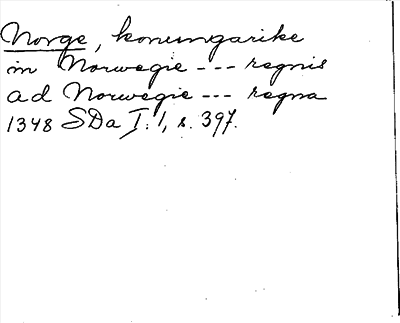 Norge, konungarike
in Norwegie --- regnis
ad Norwegie --- regna
1348 SDa I:1, s. 397.